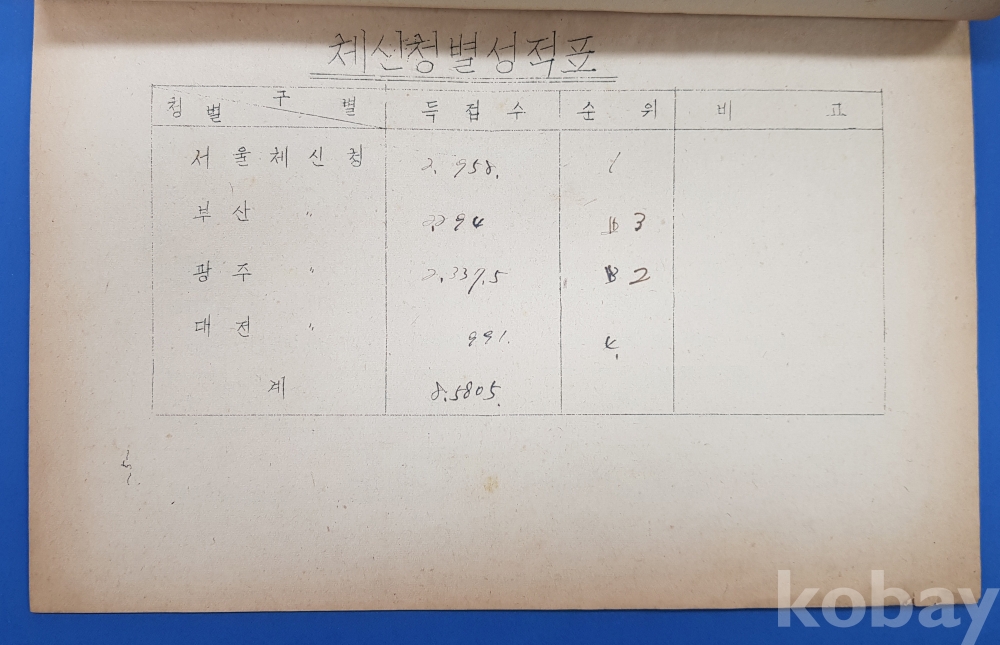 체신청별성적표
청별 구별 득점수 순위 비고
서울체신청 2.958. 1
부산 〃 2294 3
광주 〃 2.337.5 2
대전 〃 991. 4.
계 8.5805.
kobay